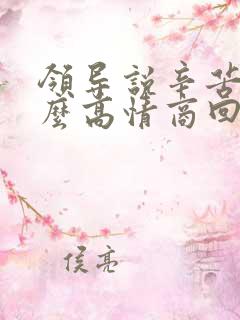 領导說辛苦
麼高情商回
侯亮